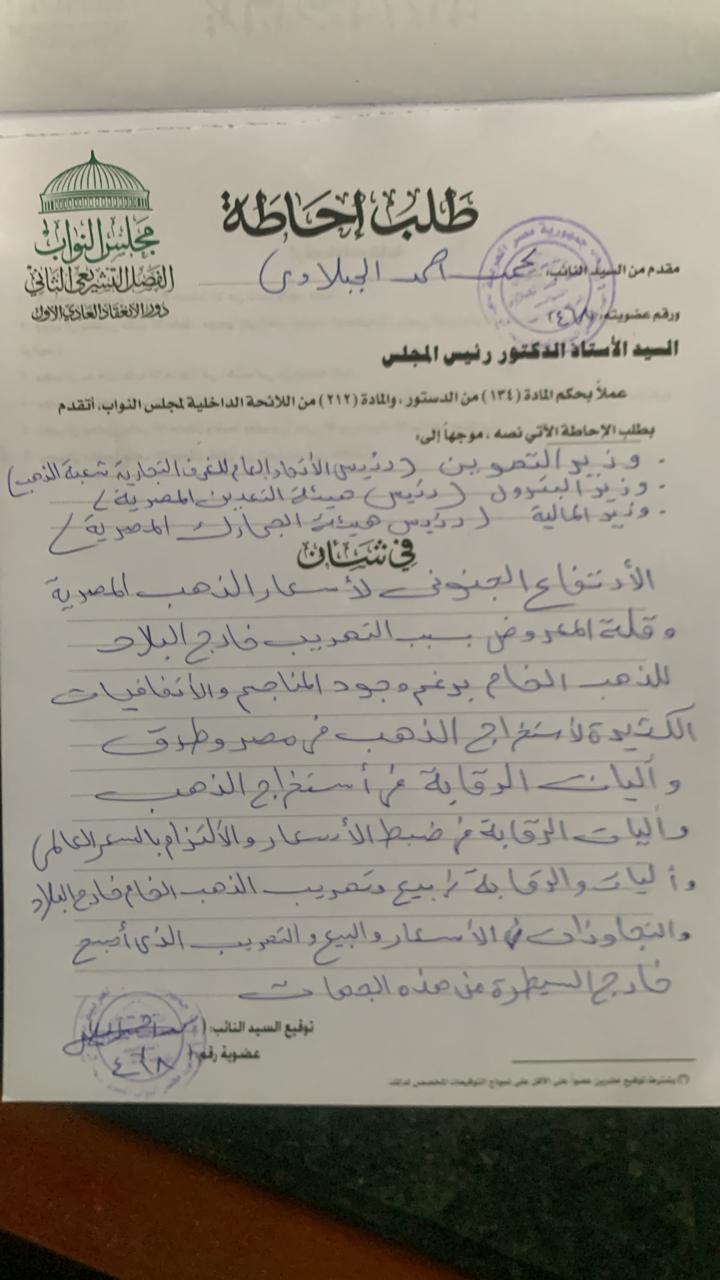 طلب إحاطة
مجلس النواب
الفصل التشريعي الثاني
دور الانعقاد العادي الأول
مقدم من السيد النائب: أحمد الجبلاوى
ورقم عضويته: ٤٦٨
السيد الأستاذ الدكتور رئيس المجلس
عملاً بحكم المادة (١٣٤) من الدستور، والمادة (٢١٢) من اللائحة الداخلية لمجلس النواب، أتقدم
بطلب الإحاطة الآتي نصه، موجهاً إلى:
- وزير التموين (رئيس الأتحاد العام للغرف التجارية شعبة الذهب)
- وزير البترول (رئيس هيئة التعدين المصرية)
- وزير المالية (رئيس هيئة الجمارك المصرية)
في شأن
الأرتفاع الجنونى لأسعار الذهب المصرية
وقلة المعروض بسبب التهريب خارج البلاد
للذهب الخام برغم وجود المناجم والأتفاقيات
الكثيرة لأستخراج الذهب فى مصر وطرق
وأليات الرقابة فى أستخراج الذهب
وأليات الرقابة فى ضبط الأسعار والألتزام بالسعر العالمى
وأليات والرقابة بيع وتهريب الذهب الخام خارج البلاد
والتجاوزات فى الأسعار والبيع والتهريب الذى أصبح
خارج السيطرة من هذه الجهات
توقيع السيد النائب:
عضوية رقم:
(*) يشترط توقيع عشرين عضواً على الأقل على نموذج التوقيعات المخصص لذلك.